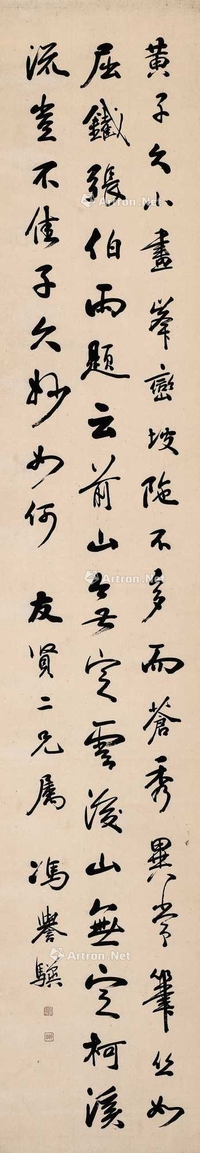 黃子久小畫峯巒坡陁不多而蒼秀異常筆筆如
屈鐵張伯雨題云前山无定雲後山無定柯溪
流豈不佳子久妙如何
友賢二兄屬 馮譽驥